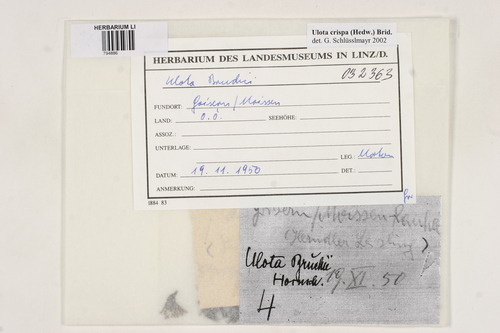 HERBARIUM LI
794886
Ulota crispa (Hedw.) Brid.
det. G. Schlüsslmayr 2002
HERBARIUM DES LANDESMUSEUMS IN LINZ/D.
Ulota Bruchii 032363
FUNDORT: Goisern/Moissen
LAND: O.Ö. SEEHÖHE:
ASSOZ.:
UNTERLAGE:
LEG.:
DATUM: 19.11.1950 DET.:
ANMERKUNG:
Goisern/Moissen
Ulota Bruchii
Hornsch. 19.XI.50
4